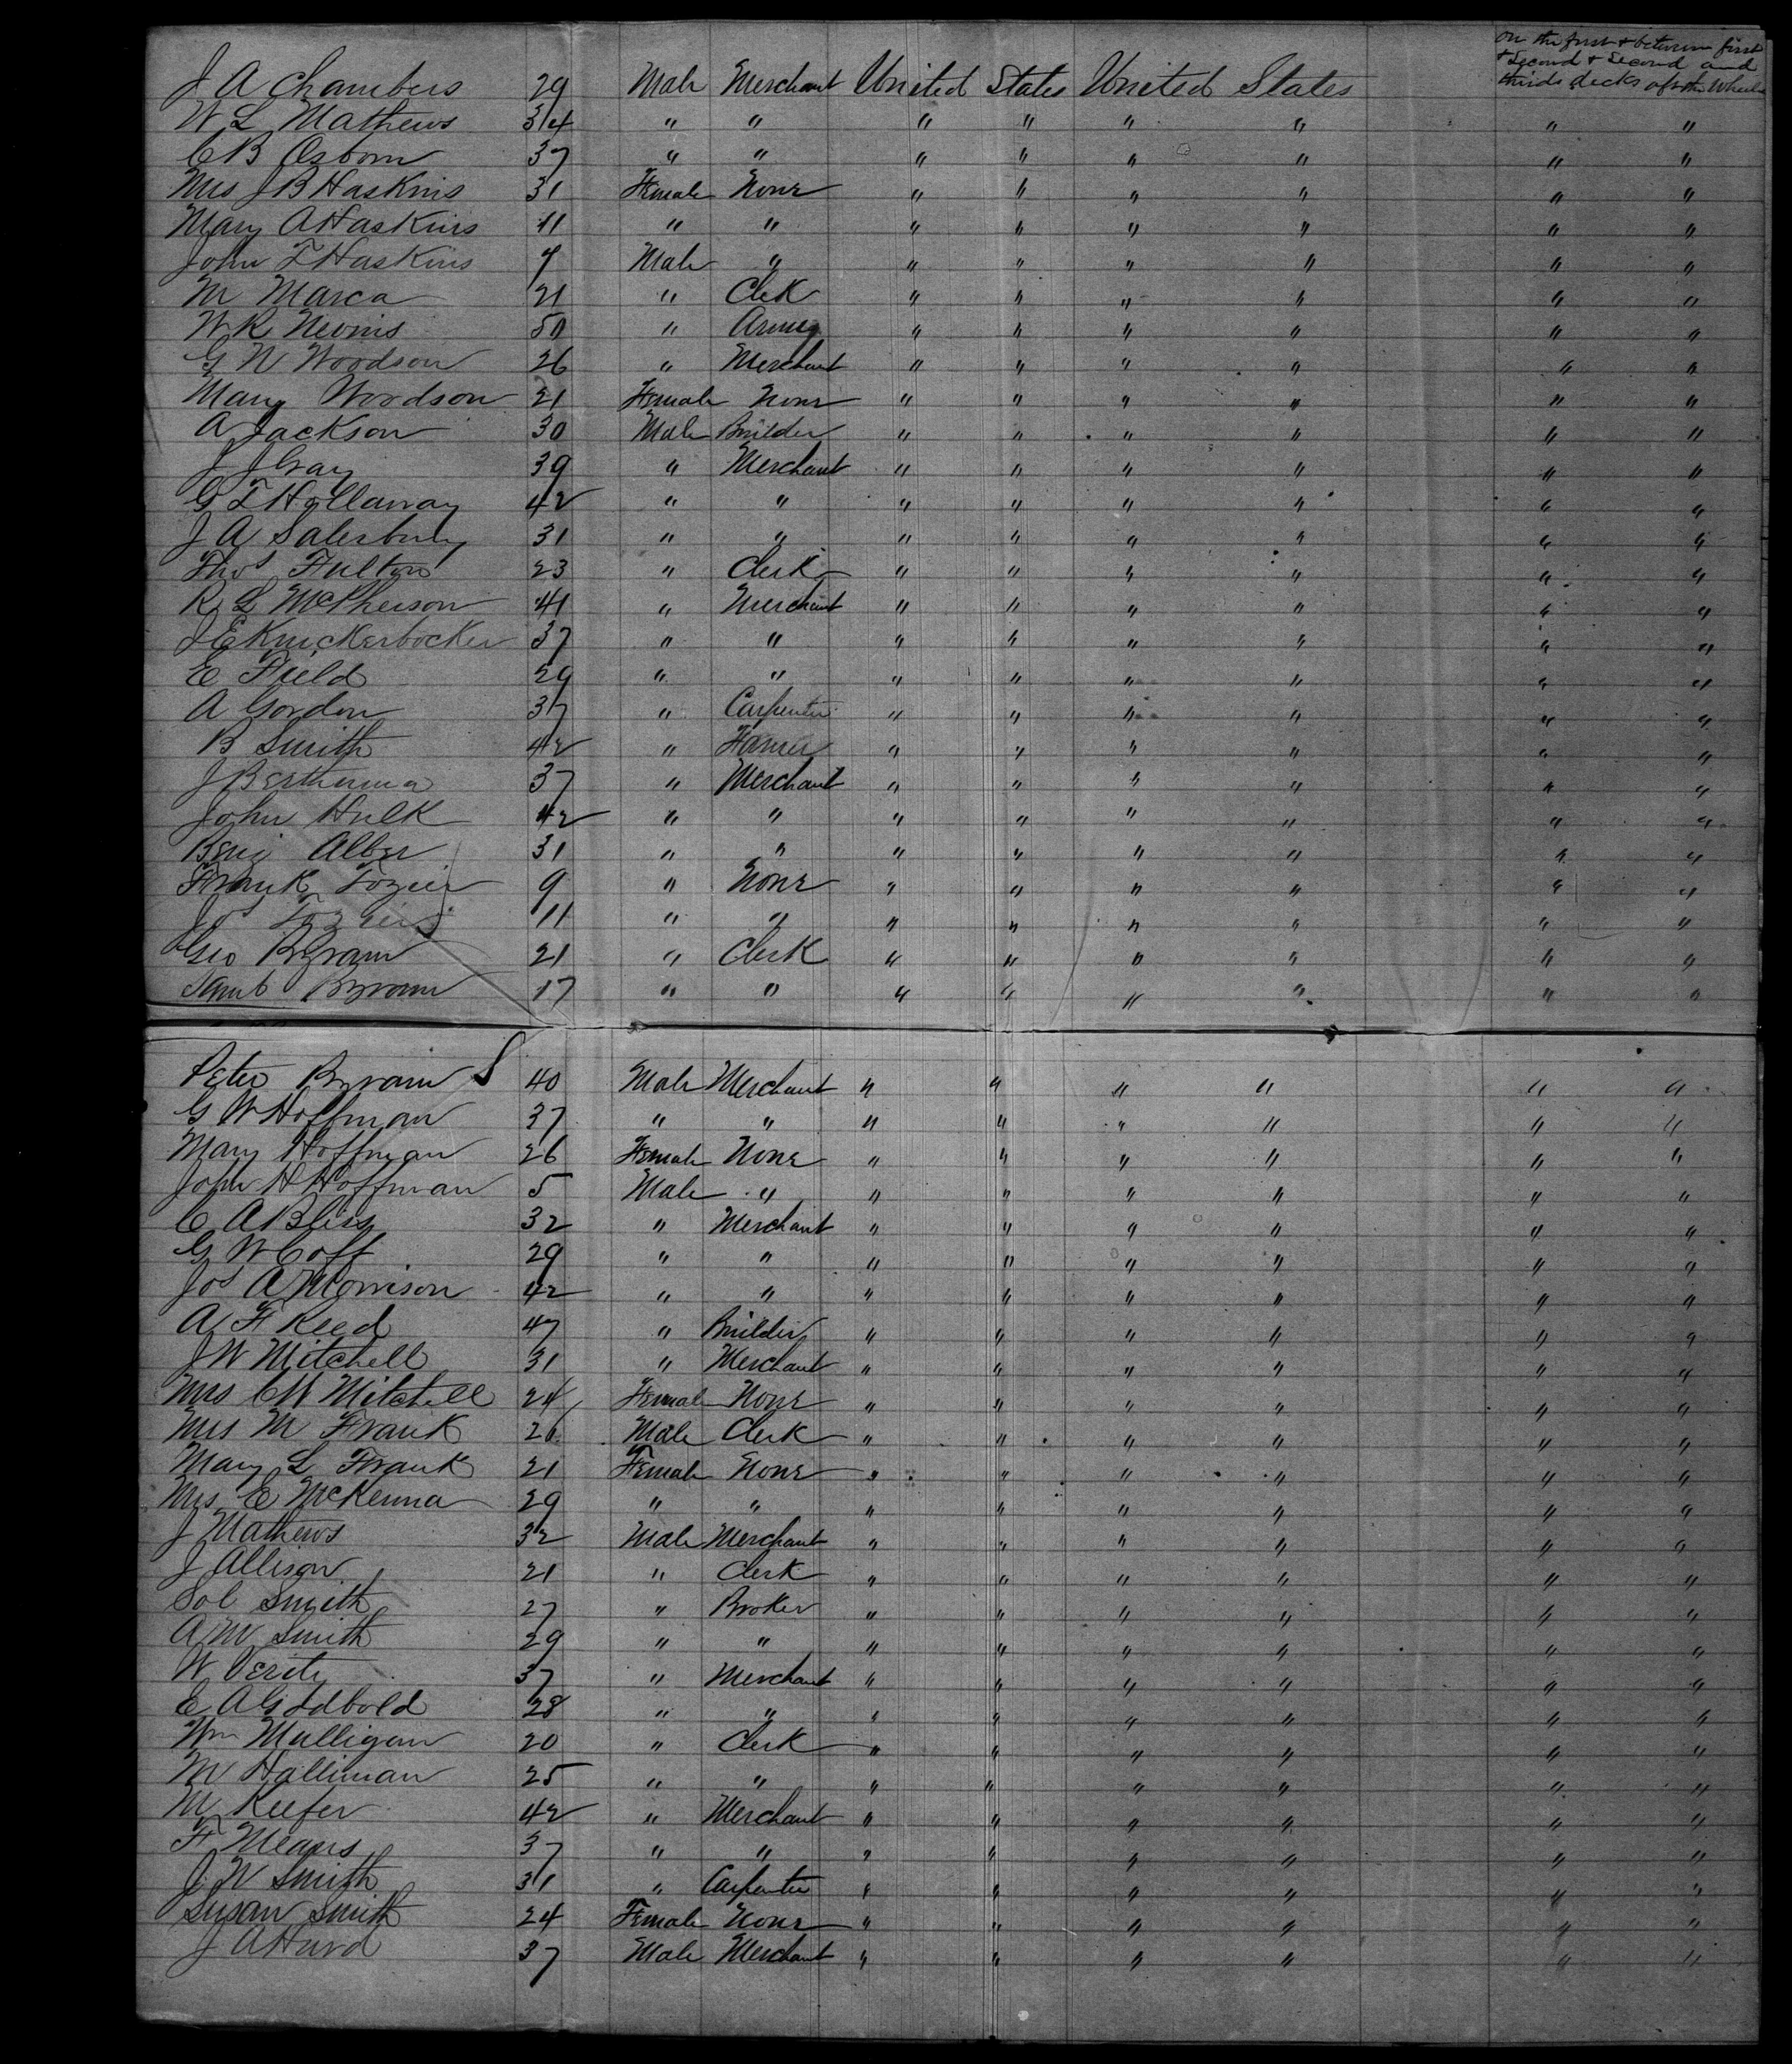 J A Chambers 29 Male Merchant United States United States on the first & between first & Second & Second and thirds decks aft the Wheel
W L Mathews 34 " " " " " " " "
C B Osborn 37 " " " " " " " "
Mrs J B Haskins 31 Female None " " " " " "
Mary A Haskins 11 " " " " " " " "
John F Haskins 7 Male " " " " " " "
M Marca 21 " Clek " " " " " "
W R 50 " Army " " " " " "
G W Woodson 26 " Merchant " " " " " "
Mary Woodson 21 Female None " " " " " "
A Jackson 30 Male Builder " " " " " "
J J Gray 39 " Merchant " " " " " "
G T Hollaway 42 " " " " " " " "
J A Salesbury 31 " " " " " " " "
Thos Fulton 23 " Clerk " " " " " "
R L McPherson 41 " Merchant " " " " " "
J E Knickerbocker 37 " " " " " " " "
E Field 29 " " " " " " " "
A Gordon 37 " Carpenter " " " " " "
B Smith 42 " Farmer " " " " " "
J 37 " Merchant " " " " " "
John Hulk 42 " " " " " " " "
Benj Alber 31 " " " " " " " "
Frank Tozier 9 " None " " " " " "
Jos Tozier 11 " " " " " " " "
Geo Byram 21 " Clerk " " " " " "
Saml Byram 17 " " " " " " " "
Peter Byram 40 Male Merchant " " " " " "
G W Hoffman 37 " " " " " " " "
Mary Hoffman 26 Female None " " " " " "
John H Hoffman 5 Male " " " " " " "
C A Bliss 32 " Merchant " " " " " "
G W Coff 29 " " " " " " " "
Jos A Morrison 42 " " " " " " " "
A F Reed 47 " Builder " " " " " "
J W Mitchell 31 " Merchant " " " " " "
Mrs C W Mitchell 24 Female None " " " " " "
Mrs M Frank 26 Male Clerk " " " " " "
Mary L Frank 21 Female None " " " " " "
Mrs E McKenna 29 " " " " " " " "
J Mathews 32 Male Merchant " " " " " "
J Allison 21 " Clerk " " " " " "
Sol Smith 27 " Broker " " " " " "
A M Smith 29 " " " " " " " "
W Verity 37 " Merchant " " " " " "
E A Godbold 28 " " " " " " " "
Wm Mulligan 20 " Clerk " " " " " "
M Halliman 25 " " " " " " " "
M Keefer 42 " Merchant " " " " " "
F Means 37 " " " " " " " "
J W Smith 31 " Carpenter " " " " " "
Susan Smith 24 Female None " " " " " "
J A Hurd 37 Male Merchant " " " " " "